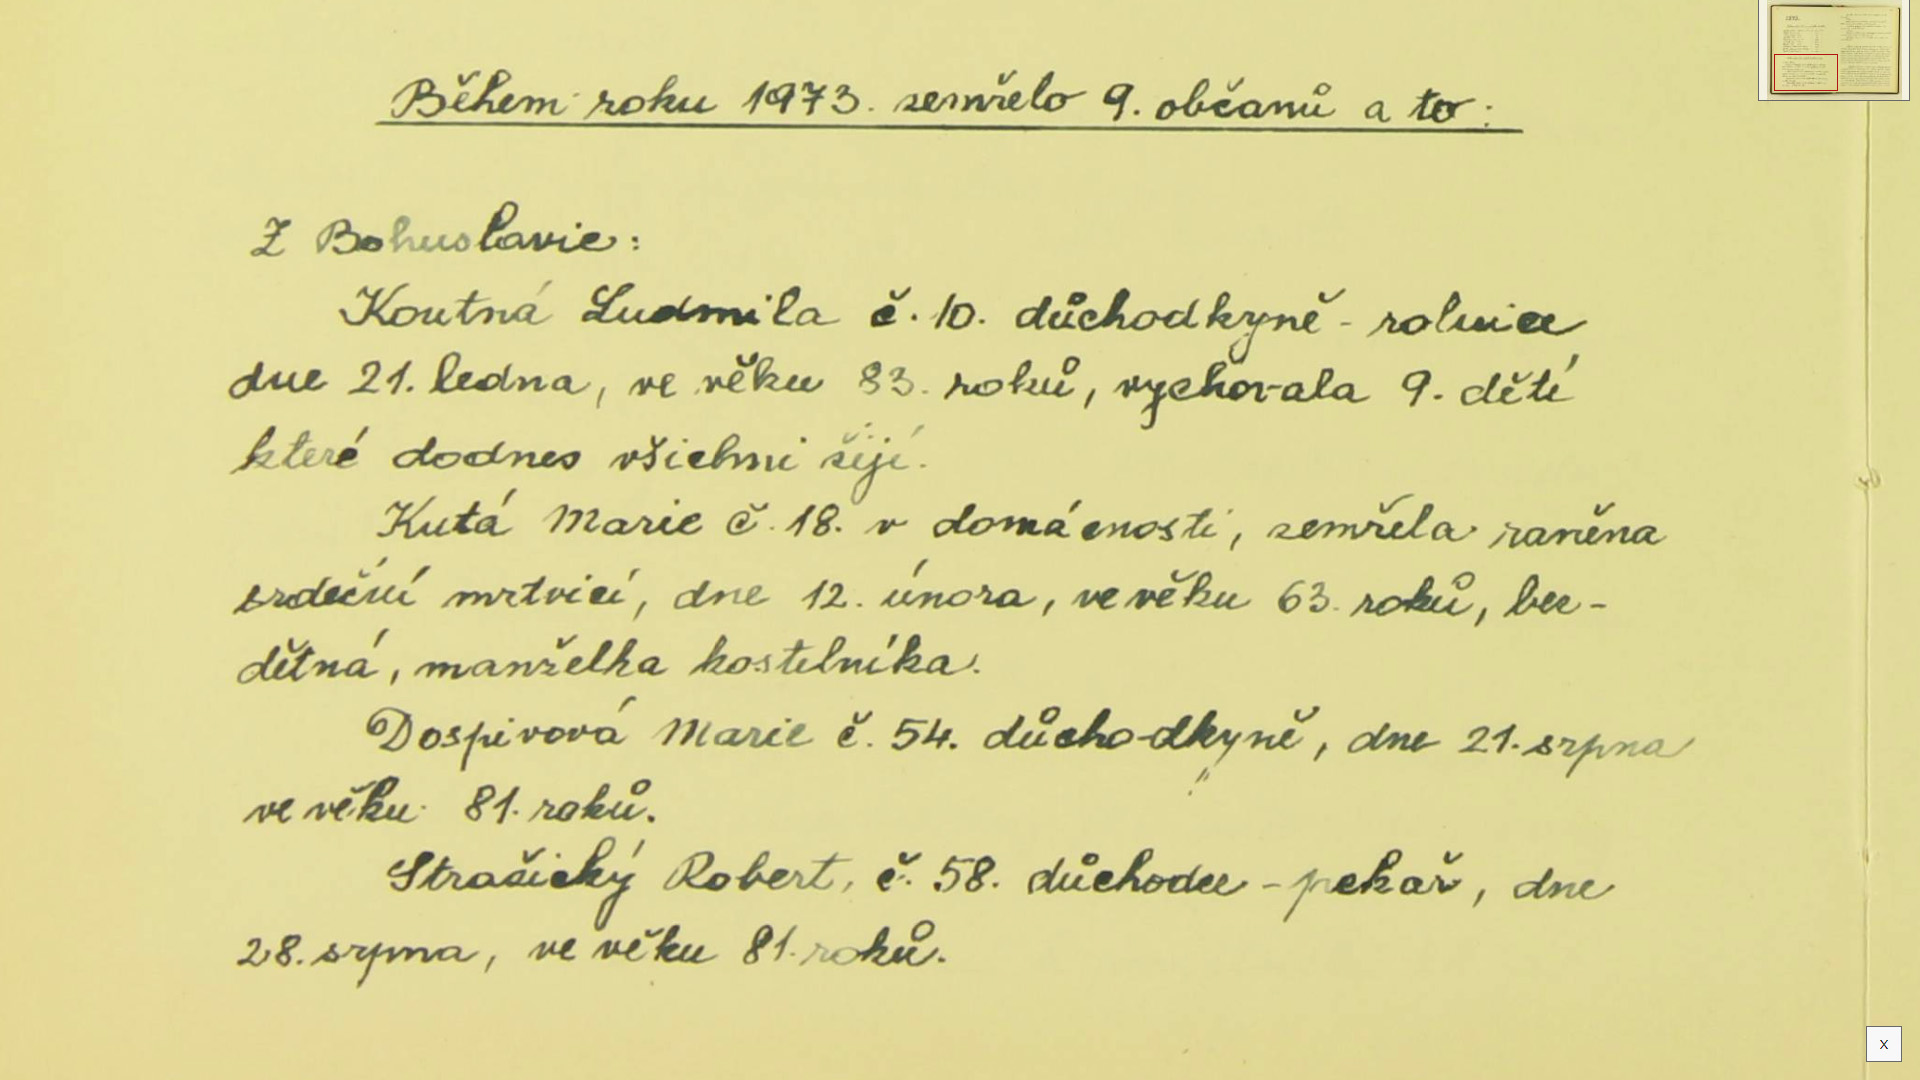 Během roku 1973. zemřelo 9. občanů a to:
Z Bohuslavic:
Koutná Ludmila č. 10. důchodkyně - rolnice
dne 21. ledna, ve věku 83. roků, vychovala 9. dětí
které dodnes všichni žijí.
Kutá Marie č. 18. v domácnosti, zemřela raněna
srdeční mrtvicí, dne 12. února, ve věku 63. roků, bez-
dětná, manželka kostelníka.
Dospivová Marie č. 54. důchodkyně, dne 21. srpna
ve věku 81. roků.
Strašický Robert, č. 58. důchodce - pekař, dne
28. srpna, ve věku 81. roků.
X